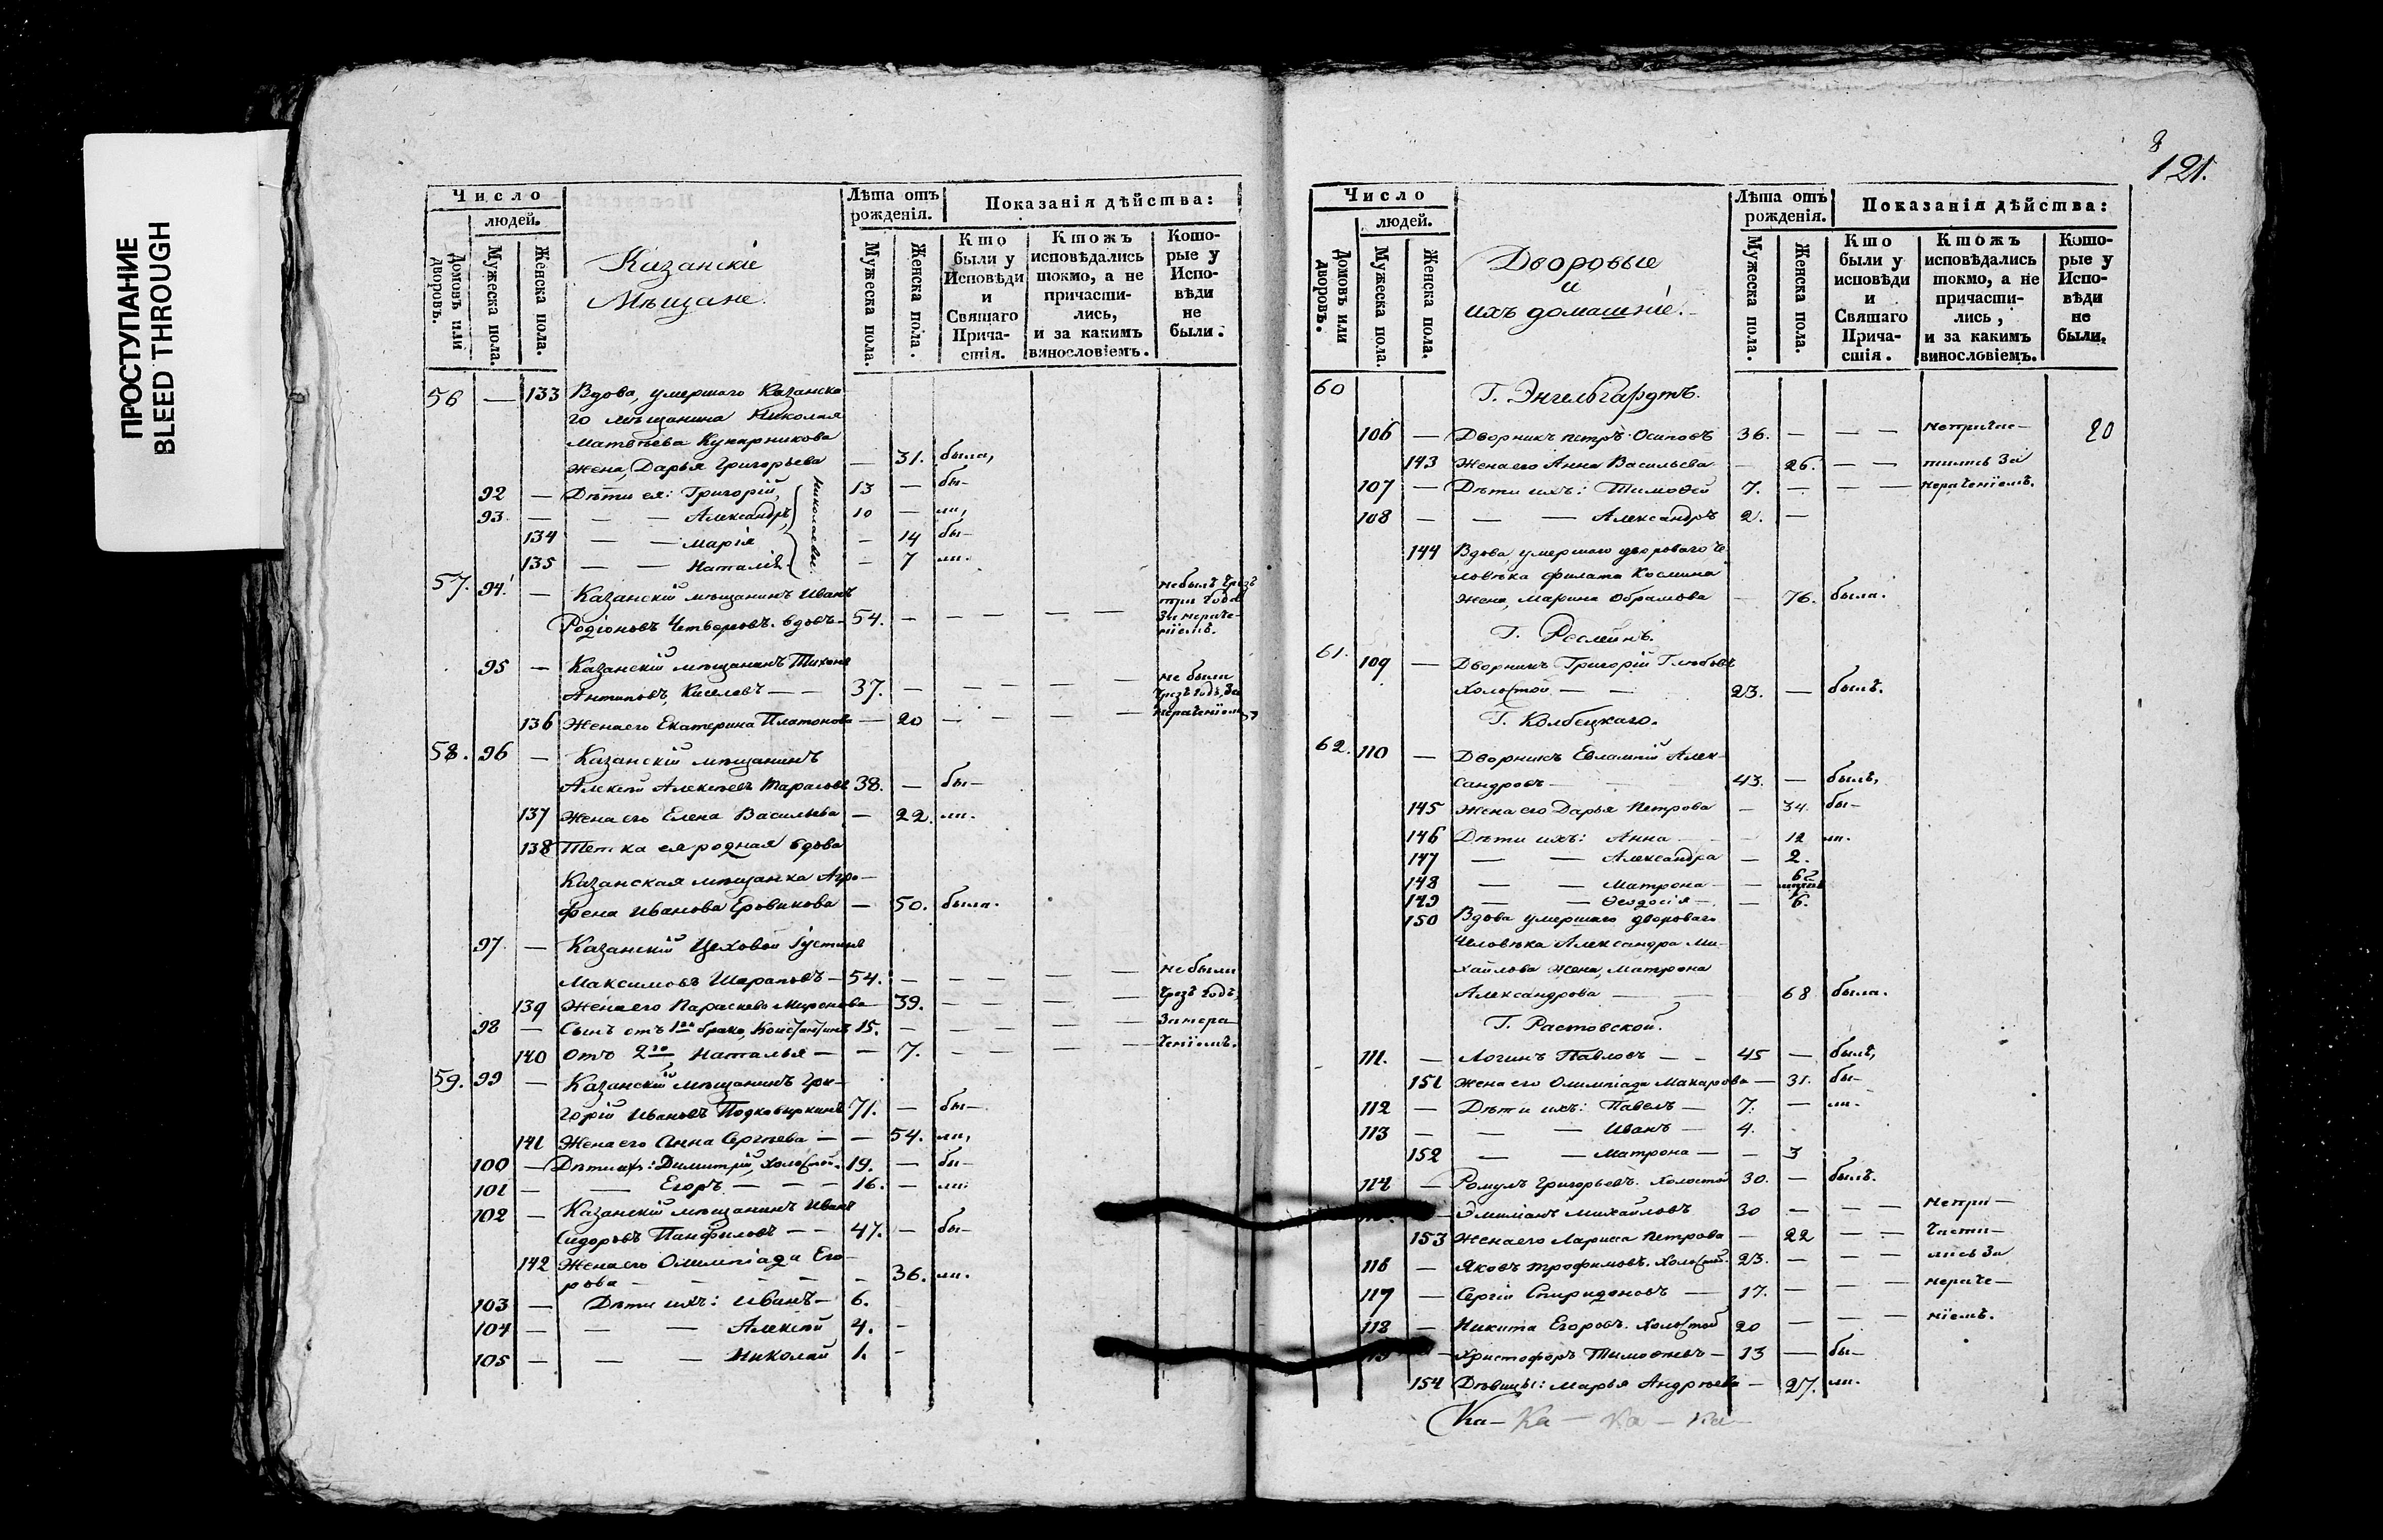 ПРОСТУПАНИЕ
BLEED THROUGH
Число
людей.
Домовъ или дворовъ.
Мужеска пола.
Женска пола.
Казанскіе
Мѣщане.
Лѣта отъ рожденія.
Мужеска пола.
Женска пола.
Показанія дѣйства:
Кто были у Исповѣди и Святаго Причастія.
Ктожъ исповѣдались токмо, а не причастились, и за какимъ винословіемъ.
Которые у Исповѣди не были.
56 — 133 Вдова, умершаго Казанска
го мѣщанина Николая
Матвѣева Кукарникова
жена, Дарья Григорьева — 31. была,
92 — Дѣти ея: Григорій, 13 — бы-
93. — — — Александръ, 10 — ли,
Николаевы.
134 — — Марія — 14 бы-
135 — — Наталія. — 7 ли.
57. 94. — Казанскій мѣщанинъ Иванъ небылъ чрезъ
три года
Родіоновъ Четверговъ. вдовъ — 54. — — — — — за нераче-
ніемъ.
95 — Казанскій мѣщанинъ Тихонъ
Антиповъ, Киселевъ — — 37. — — — — — не были
чрезъ годъ, за
136 Жена его Екатерина Платонова — 20 — — — — нераченіемъ
58. 96 — Казанскій мѣщанинъ
Алексѣй Алексѣевъ Тарасовъ 38. — бы-
137 Жена его Елена Васильева — 22. ли.
138 Тетка ея родная вдова
Казанская мѣщанка Агра-
фена Иванова Еровикова — 50. была.
97. — Казанскій Цеховой Іустинъ
Максимовъ Шараповъ — 54. — — — — — не были
139 Жена его Параскева Миронова — 39. — — — — чрезъ годъ,
98 — Сынъ отъ 1го брака, Константинъ 15. — — — — — за нера-
140 Отъ 2го Наталья — — 7. — — — — ченіемъ.
59. 99 — Казанскій мѣщанинъ Гри-
горій Ивановъ Подковыркинъ 71. — бы-
141 Жена его Анна Сергѣева — — 54. ли,
100 — Дѣти ихъ: Димитрій, холостой. 19. — бы-
101 — — Егоръ — — — 16. — ли.
102 — Казанскій мѣщанинъ Иванъ
Сидоровъ Панфиловъ — — 47. — бы-
142 Жена его Олимпіада Его-
рова — — — — — 36. ли.
103 — Дѣти ихъ: Иванъ — 6.
104 — — — Алексѣй 4. —
105 — — — Николай 1. —
8
121.
Число
людей.
Домовъ или дворовъ.
Мужеска пола.
Женска пола.
Дворовые
и
ихъ домашніе.
Лѣта отъ рожденія.
Мужеска пола.
Женска пола.
Показанія дѣйства:
Кто были у исповѣди и Святаго Причастія.
Ктожъ исповѣдались токмо, а не причастились, и за какимъ винословіемъ.
Которые у Исповѣди не были.
60 Г. Энгельгардтъ.
106 — Дворникъ Петръ Осиповъ 36. — — — непричас- 20
143 Жена его Анна Васильева — 26. — — тились за
107 — Дѣти ихъ: Тимоѳей 7. — — — нераченіемъ.
108 — — — Александръ 2. —
144 Вдова, умершаго двороваго че
ловѣка Филата Космина
жена, Марина Обрамова — 76. была.
Г. Реслейнъ.
61. 109 — Дворникъ Григорій Глѣбовъ
холостой — — 23. — былъ.
Г. Колбецкаго.
62. 110 — Дворникъ Евлампій Алек-
сандровъ — — 43. — былъ,
145 Жена его Дарья Петрова — 34. бы-
146 Дѣти ихъ: Анна — — 12 ли.
147 — — Александра — 2.
148 — — Матрона — —
149 — — Ѳеодосія — — 6.
150 Вдова умершаго двороваго
человѣка Александра Ми-
хайлова жена, Матрона
Александрова — — 68 была.
Г. Растовской.
111. — Логинъ Павловъ — — 45 — былъ,
151 Жена его Олимпіада Макарова — 31. бы-
112 — Дѣти ихъ: Павелъ — 7. — ли.
113 — — — Иванъ — 4.
152 — — Матрона — — 3
114 — Ромулъ Григорьевъ. холостой 30. — былъ.
— Эмиліанъ Михайловъ 30 — — — непри-
153 Жена его Лариса Петрова — 22 — — части-
116 — Яковъ Трофимовъ. холостой. 23. — — — лись за
117 — Сергій Спиридоновъ — 17. — — — нераче-
118 — Никита Егоровъ. холостой 20 — — — ніемъ.
— Христофоръ Тимоѳеевъ — 13 — бы-
154 Дѣвицы: Марья Андрѣева — 27. ли.
Ка- Ка - Ка - Ка-